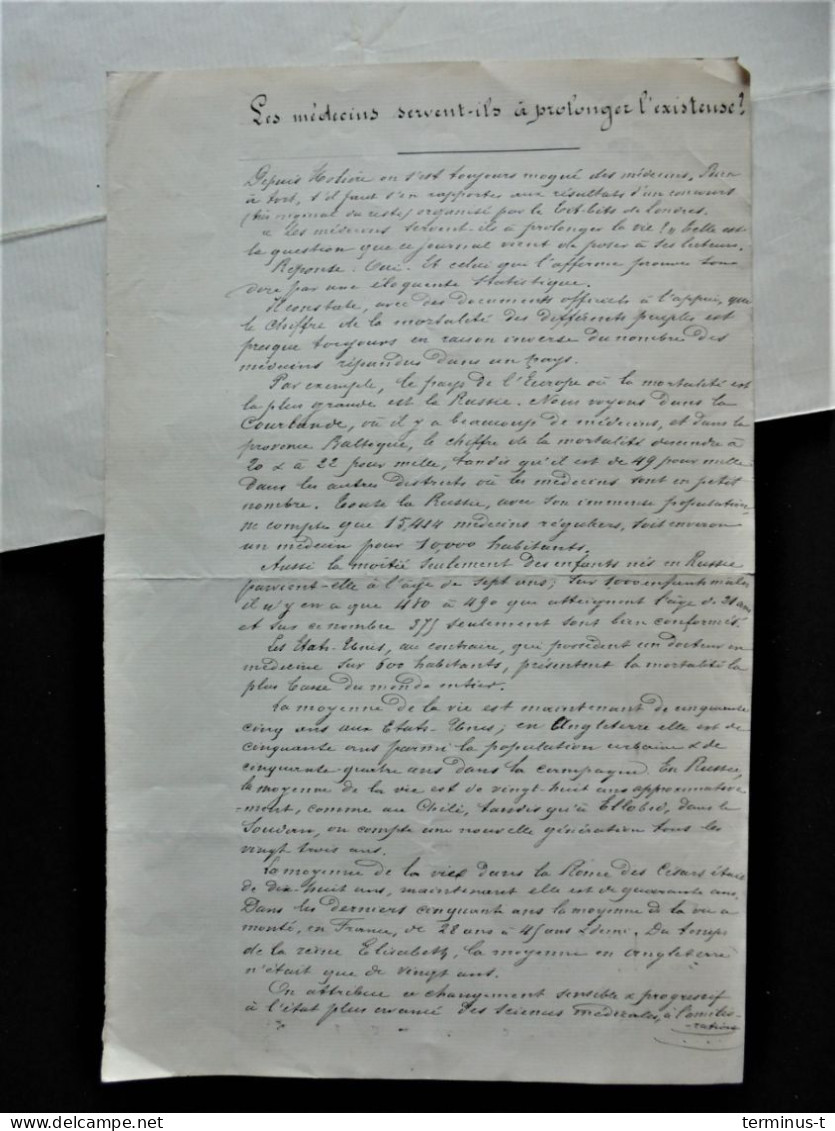 Les médecins servent-ils à prolonger l'existense?
Depuis Molière on s'est toujours moqué des médecins. Bien
à tort, s'il faut s'en rapporter aux résultats d'un concours
(très original du reste) organisé par le Tit-bits de Londres.
« Les médecins servent-ils à prolonger la vie? » telle est
la question que ce journal vient de poser à ses lecteurs.
Réponse: Oui. Et celui qui l'affirme prouve son
dire par une éloquente statistique.
Il constate, avec des documents officiels à l'appui, que
le chiffre de la mortalité des différents peuples est
presque toujours en raison inverse du nombre des
médecins répandus dans un pays.
Par exemple, le pays de l'Europe où la mortalité est
la plus grande est la Russie. Nous voyons dans la
Courlande, où il y a beaucoup de médecins, et dans la
province Baltique, le chiffre de la mortalité descendre à
20 & à 22 pour mille, tandis qu'il est de 49 pour mille
dans les autres districts où les médecins sont en petit
nombre. Toute la Russie, avec son immense population,
ne compte que 15,414 médecins réguliers, soit environ
un médecin pour 10,000 habitants.
Aussi la moitié seulement des enfants nés en Russie
parvient-elle à l'âge de sept ans; sur 1000 enfants mâles
il n'y en a que 480 à 490 que atteignent l'âge de 21 ans
et sur ce nombre 375 seulement sont bien conformés.
Les Etats-Unis, au contraire, qui possèdent un docteur en
médecine sur 600 habitants, présentent la mortalité la
plus basse du monde entier.
La moyenne de la vie est maintenant de cinquante
cinq ans aux Etats-Unis; en Angleterre elle est de
cinquante ans parmi la population urbaine & de
cinquante-quatre ans dans la campagne. En Russie,
la moyenne de la vie est de vingt-huit ans approximative
-ment, comme au Chili, tandis qu'à Ellobed, dans le
Soudan, on compte une nouvelle génération tous les
vingt trois ans.
La moyenne de la vie dans la Rome des Césars était
de dix-huit ans, maintenant elle est de quarante ans.
Dans les derniers cinquante ans la moyenne de la vie a
monté, en France, de 28 ans à 45 ans & demi. Du temps
de la reine Elisabeth, la moyenne en Angleterre
n'était que de vingt ans.
On attribue ce changement sensible & progressif
à l'état plus avancé des sciences médicales, à l'amélio-
-ration
terminus-t